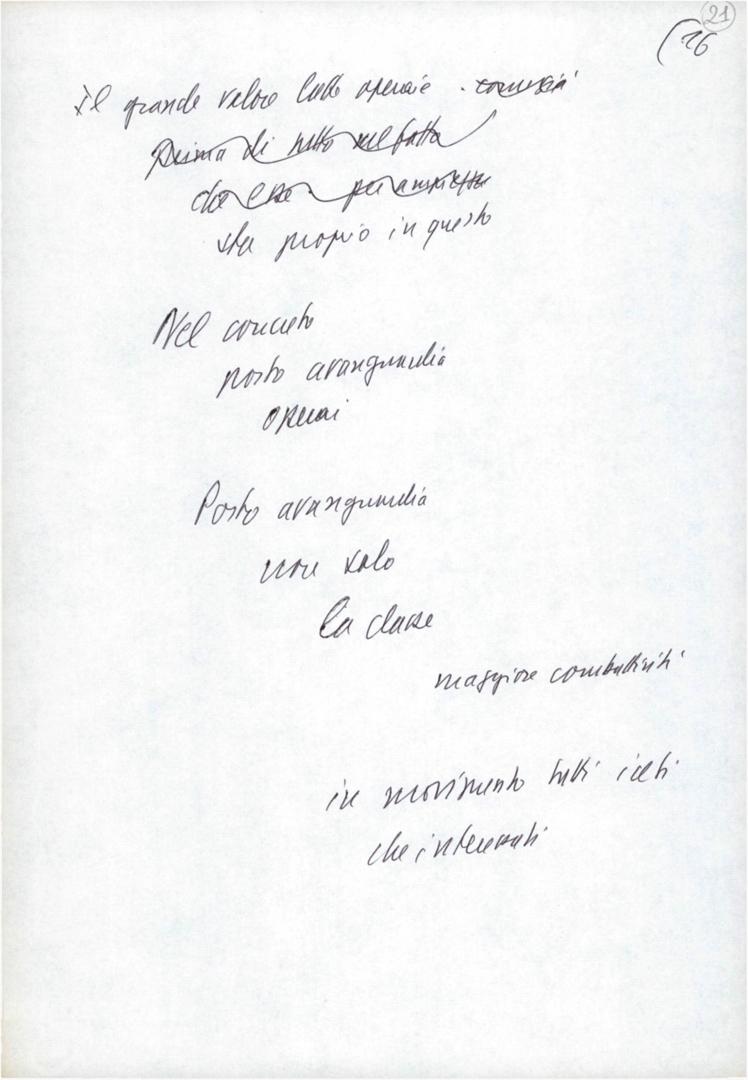 21
(26
Il grande valore lotte operaie
Prima di tutto nel fatto
sta proprio in questo
Nel concreto
posto avanguardia
operai
Posto avanguardia
non solo
la classe
maggiore combattività
in movimento tutti i ceti
che interessati